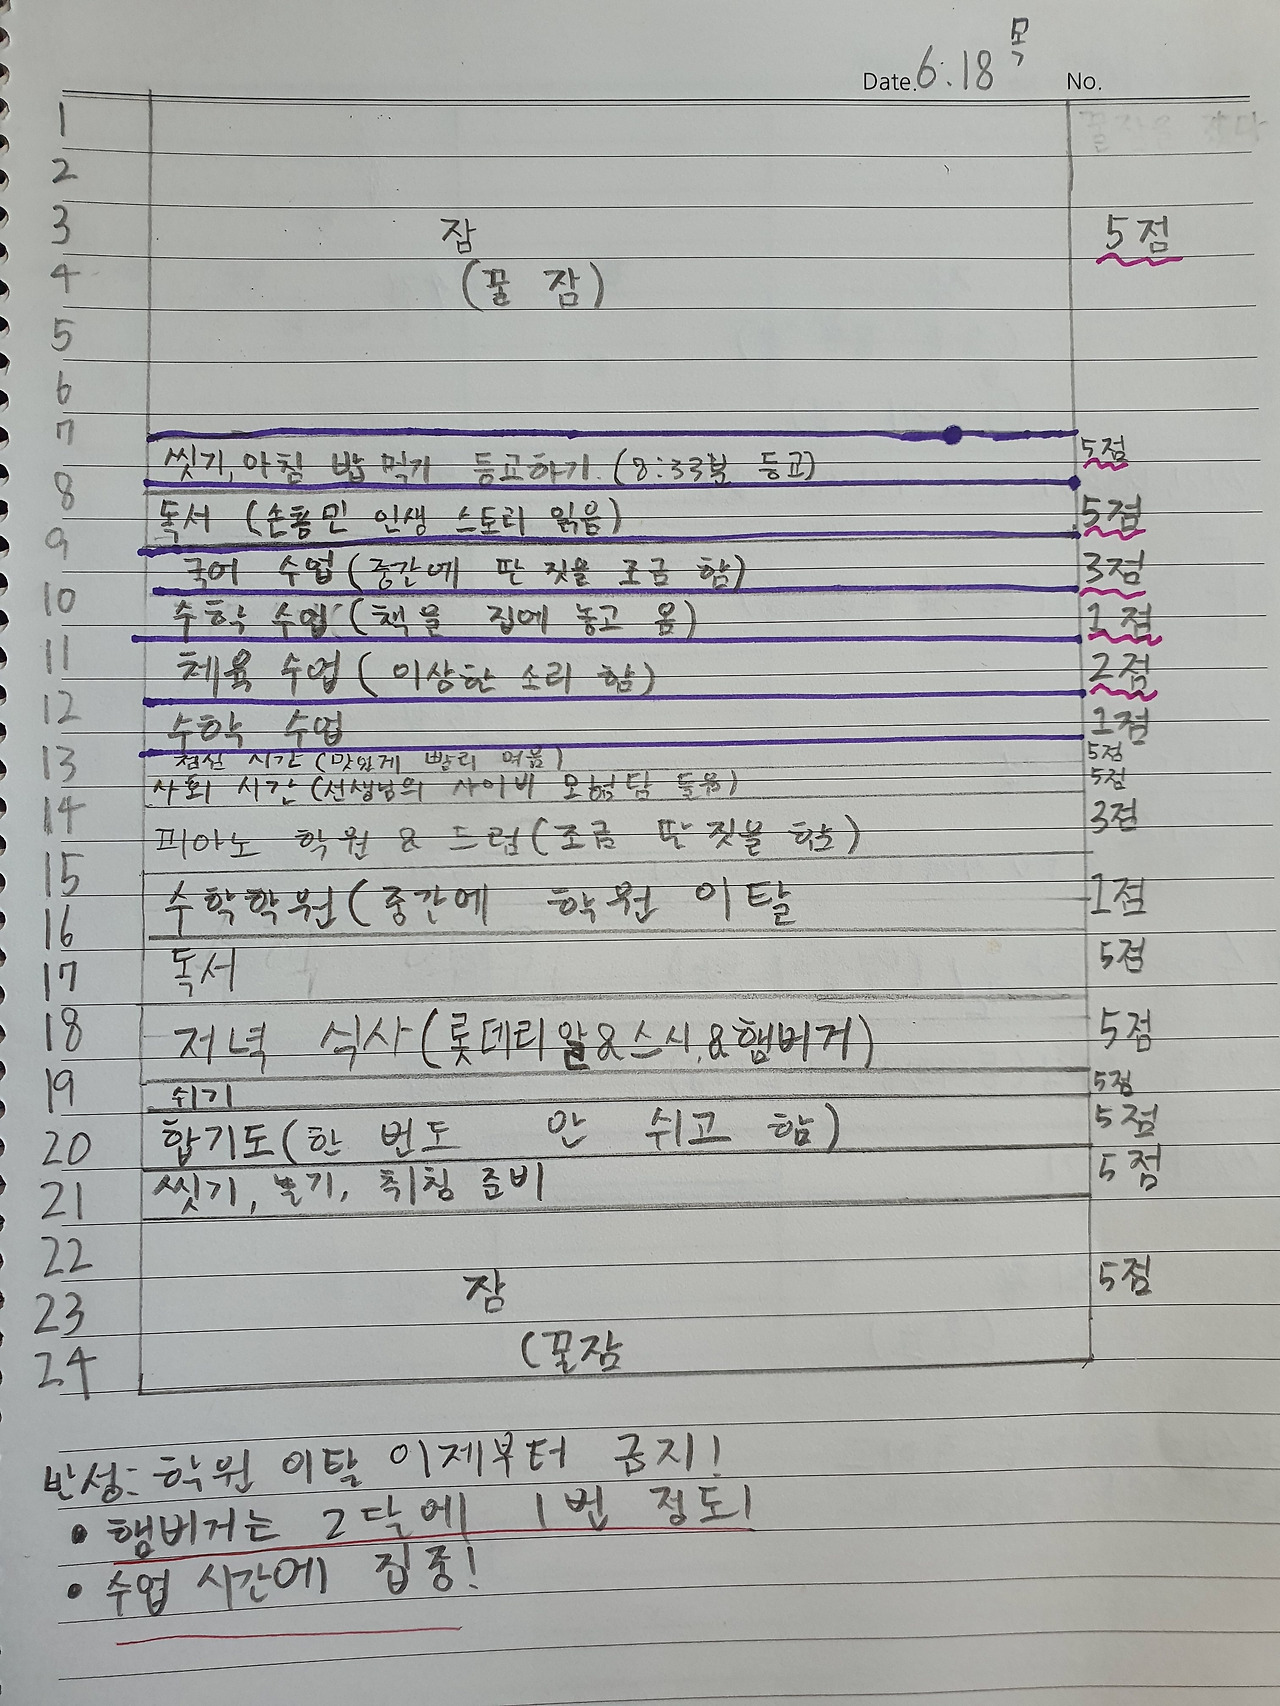 목
Date. 6.18 No.
1
2
3 잠 5점
4 (꿀 잠)
5
6
7
씻기, 아침 밥 먹기 등교하기. (8:33분 등교) 5점
8
독서 (손흥민 인생 스토리 읽음) 5점
9
국어 수업 (중간에 딴 짓을 조금 함) 3점
10
수학 수업 (책을 집에 놓고 옴) 1점
11
체육 수업 (이상한 소리 함) 2점
12
수학 수업 1점
13 점심 시간 (맛있게 빨리 먹음) 5점
사회 시간 (선생님의 사이비 모험담 들음) 5점
14
피아노 학원 & 드럼 (조금 딴 짓을 함) 3점
15
수학학원 (중간에 학원 이탈 1점
16
독서 5점
17
18 저녁 식사 (롯데리알&스시&햄버거) 5점
19 쉬기 5점
20 합기도 (한 번도 안 쉬고 함) 5점
21 씻기, 놀기, 취침 준비 5점
22
23 잠 5점
24 (꿀잠
반성: 학원 이탈 이제부터 금지!
• 햄버거는 2달에 1번 정도!
• 수업 시간에 집중!